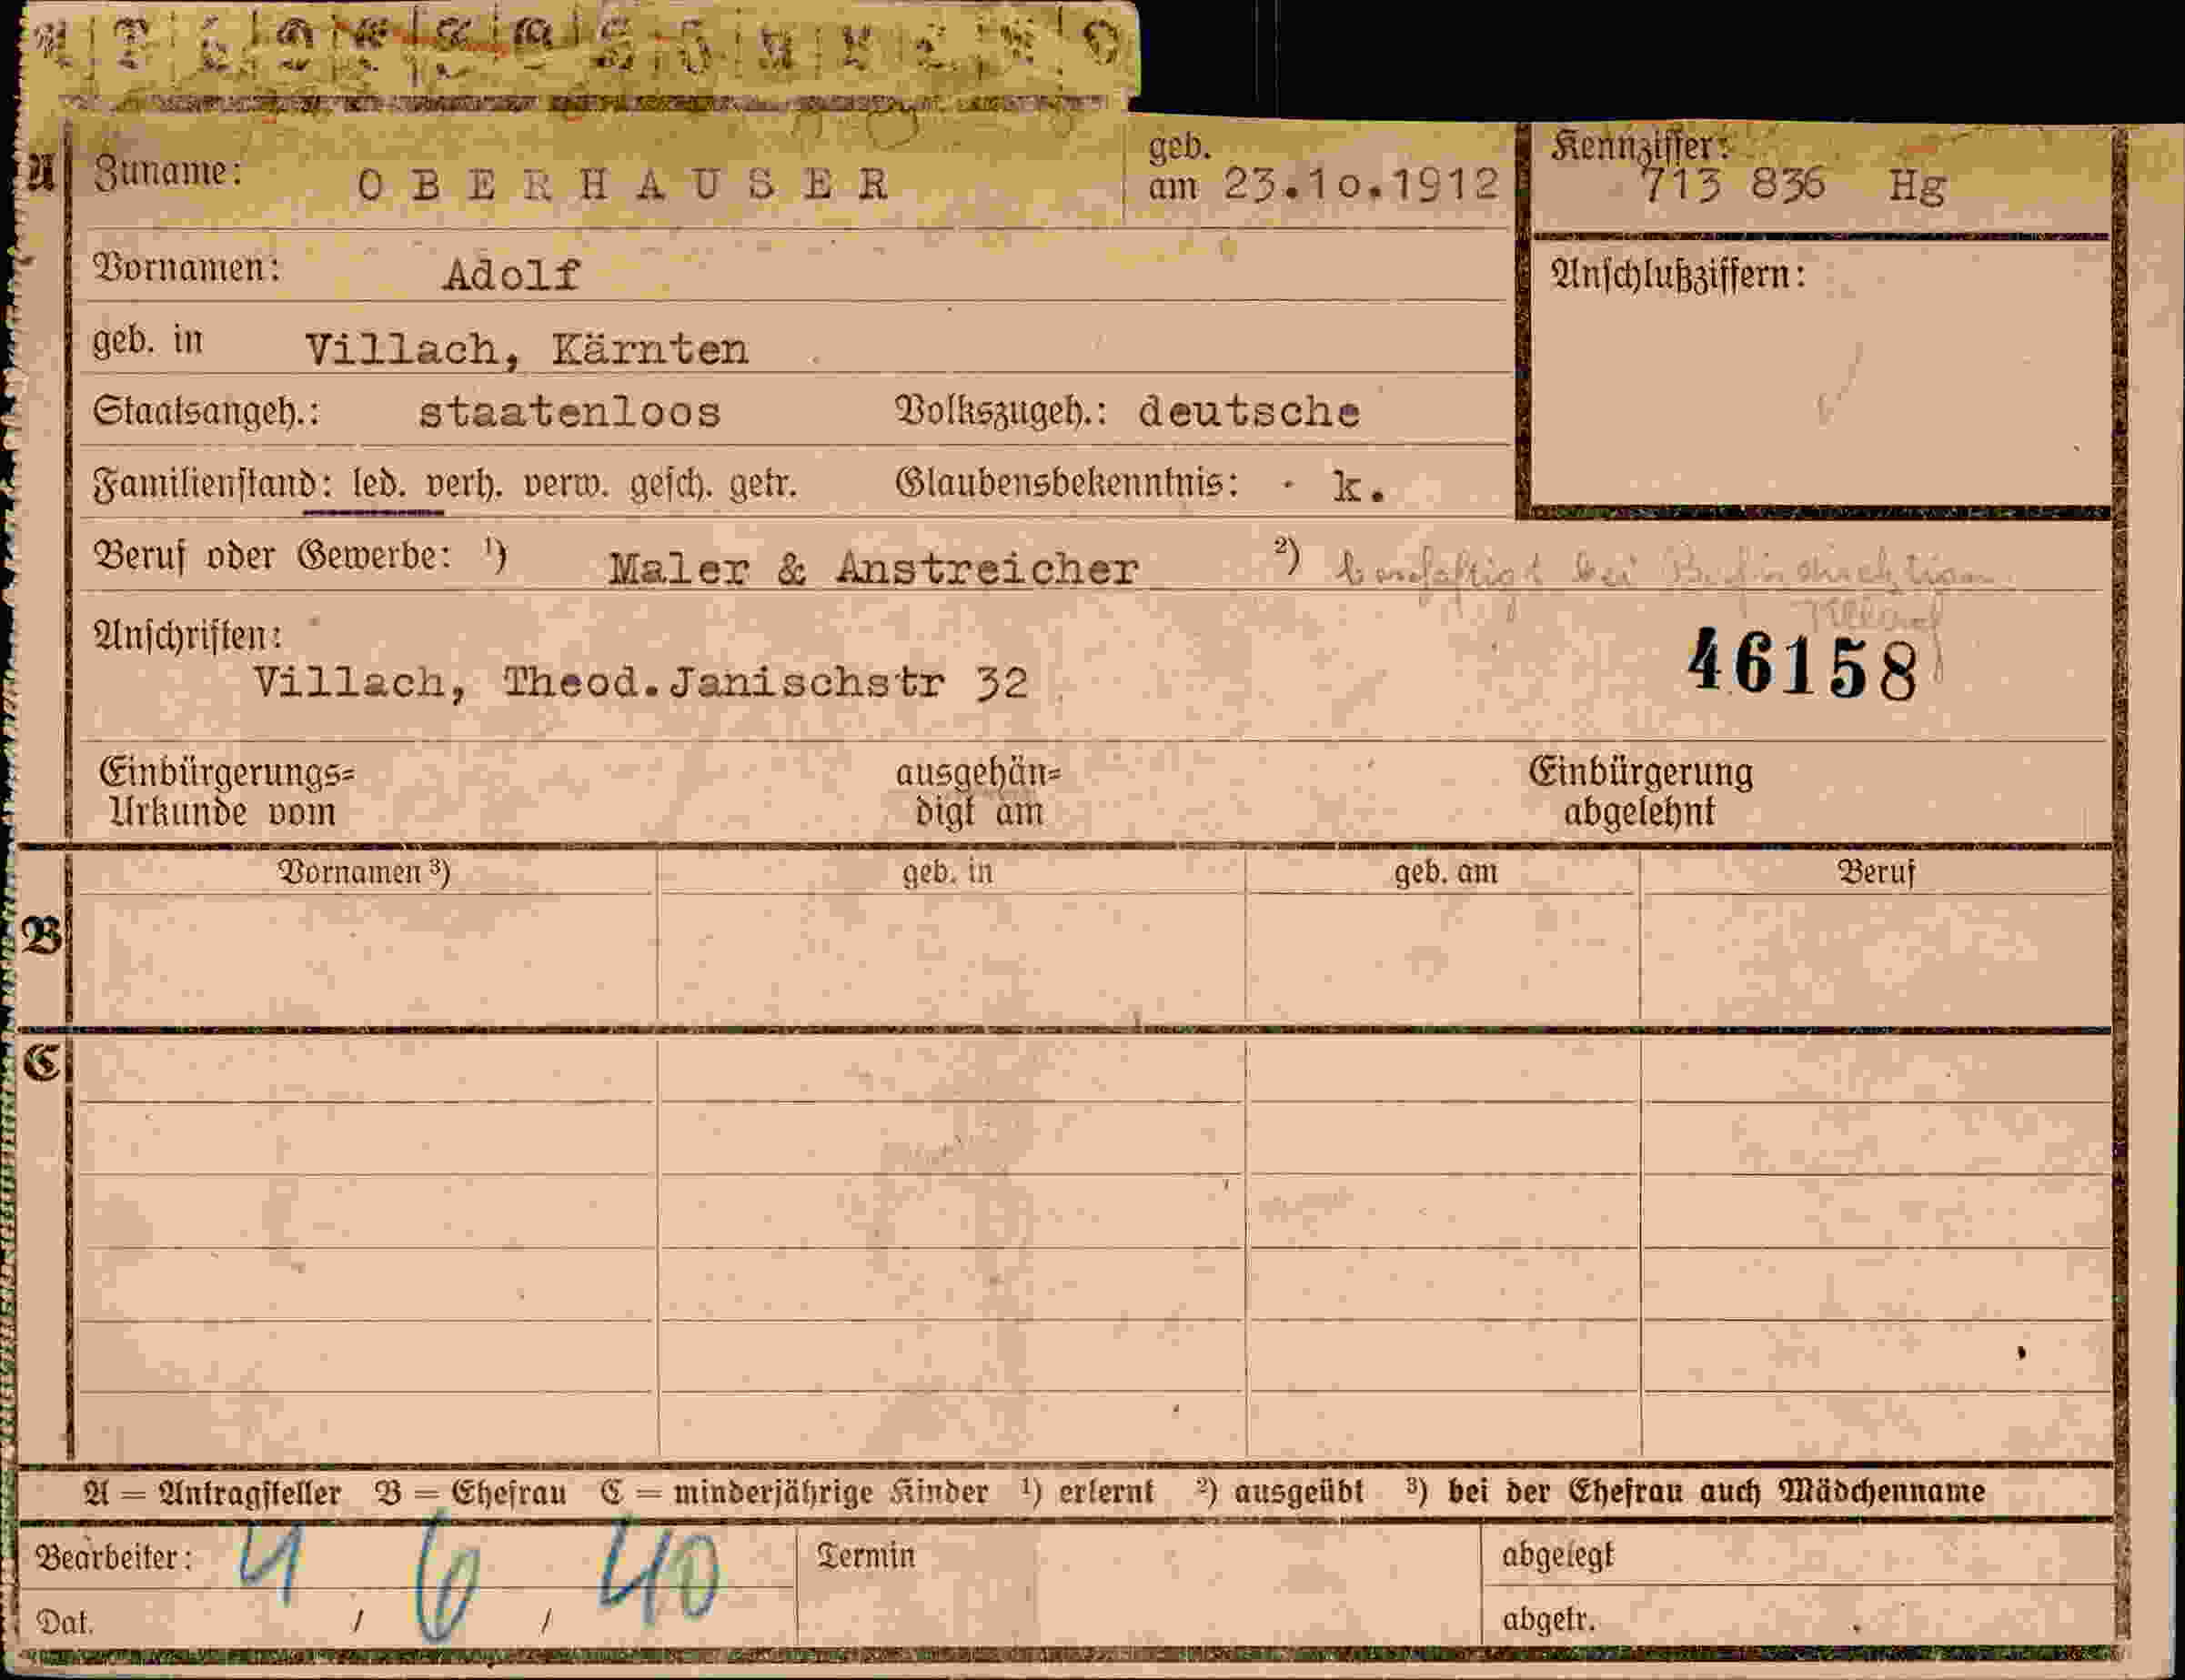 A Zuname: OBERHAUSER geb. am 23.10.1912 Kennziffer: 713 836 Hg
Vornamen: Adolf Anschlußziffern:
geb. in Villach, Kärnten
Staatsangeh.: staatenloos Volkszugeh.: deutsche
Familienstand: led. verh. verw. gesch. getr. Glaubensbekenntnis: k.
Beruf oder Gewerbe: ¹) Maler & Anstreicher ²) bei
Anschriften:
Villach, Theod.Janischstr 32
46158
Einbürgerungs= ausgehän= Einbürgerung
Urkunde vom digt am abgelehnt
Vornamen ³) geb. in geb. am Beruf
B
C
A = Antragsteller B = Ehefrau C = minderjährige Kinder ¹) erlernt ²) ausgeübt ³) bei der Ehefrau auch Mädchenname
Bearbeiter: Termin abgelegt
4 6 40
Dat. / / abgetr.